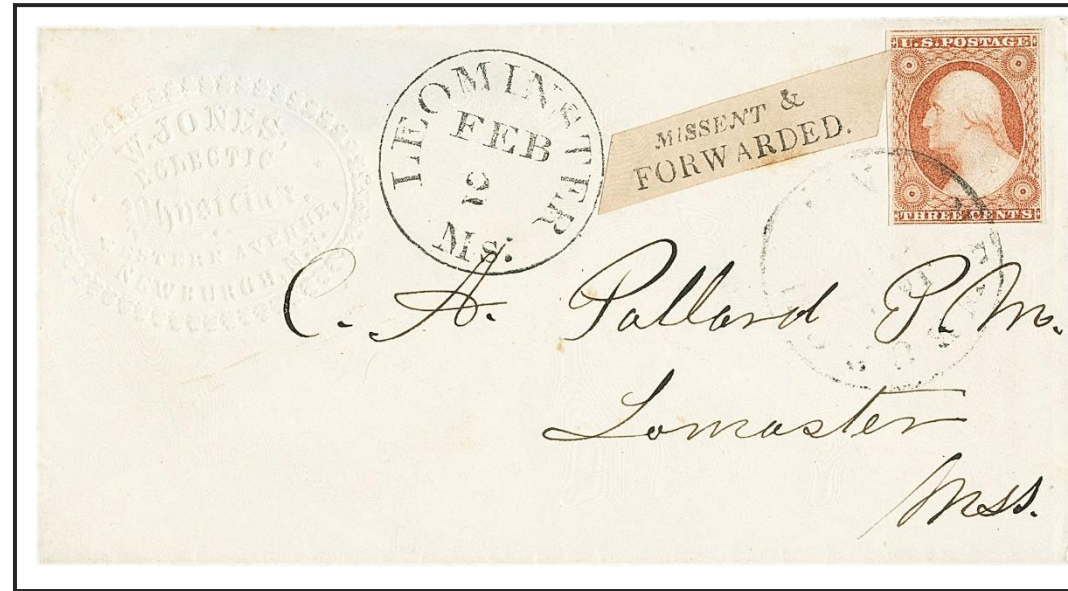 W. JONES,
ECLECTIC
Physician,
WESTERN AVENUE,
NEWBURGH, N.Y.
LEOMINSTER
FEB
2
Ms.
MISSENT &
FORWARDED.
U.S. POSTAGE
THREE CENTS
C. A. Pallard P. M.
Lomaster
Mss.